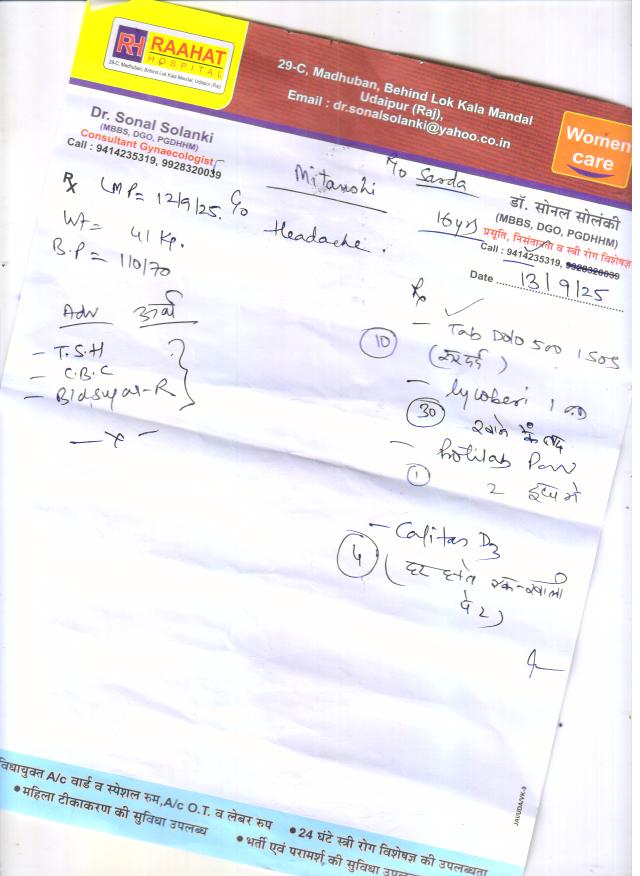 RH RAAHAT
HOSPITAL
29-C, Madhuban, Behind Lok Kala Mandal, Udaipur (Raj)
29-C, Madhuban, Behind Lok Kala Mandal
Udaipur (Raj),
Email : dr.sonalsolanki@yahoo.co.in
Women
care
Dr. Sonal Solanki
(MBBS, DGO, PGDHHM)
Consultant Gynaecologist
Call : 9414235319, 9928320039
डॉ. सोनल सोलंकी
(MBBS, DGO, PGDHHM)
प्रसूति, निसंतानता व स्त्री रोग विशेषज्ञ
Call : 9414235319, 9928320039
Date 13/9/25
Mitanshi R/o Sarda
16 yrs
Rx LMP = 12/9/25. C/o Headache.
Wt = 41 Kg.
B.P = 110/70
Adv
- T.S.H
- C.B.C
- Bldsugar-R
- x -
Rx
- Tab Dolo 500 1 SOS
10
- lycoberi 1
30
खाने के बाद
-
1
2
- Calitas D3
4
JAI/UDAI/VK-9
विधायुक्त A/c वार्ड व स्पेशल रुम, A/c O.T. व लेबर रुम
• 24 घंटे स्त्री रोग विशेषज्ञ की उपलब्धता
• महिला टीकाकरण की सुविधा उपलब्ध
• भर्ती एवं परामर्श की सुविधा